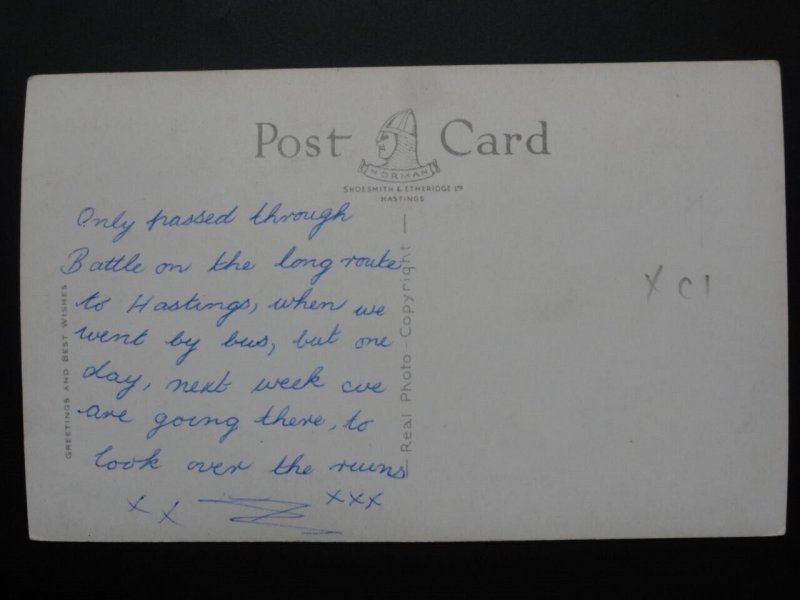 Post Card
NORMAN
SHOESMITH & ETHERIDGE LTD
HASTINGS
Only passed through
Battle on the long route
to Hastings, when we
went by bus, but one
day, next week we
are going there, to
look over the ruins
x x xxx
GREETINGS AND BEST WISHES
Real Photo - Copyright
X C1